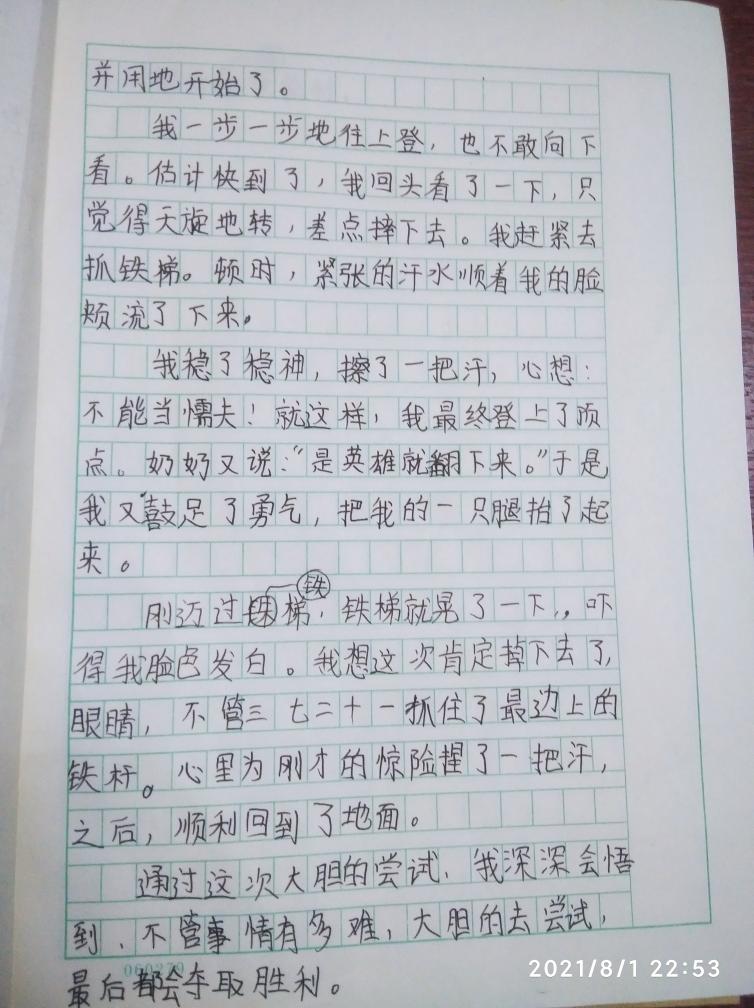 并用地开始了。
我一步一步地往上登，也不敢向下
看。估计快到了，我回头看了一下，只
觉得天旋地转，差点摔下去。我赶紧去
抓铁梯。顿时，紧张的汗水顺着我的脸
颊流了下来。
我稳了稳神，擦了一把汗，心想：
不能当懦夫！就这样，我最终登上了顶
点。奶奶又说：“是英雄就翻下来。”于是
我又鼓足了勇气，把我的一只腿抬了起
来。
铁
刚迈过梯，铁梯就晃了一下，，吓
得我脸色发白。我想这次肯定掉下去了，
眼睛，不管三七二十一抓住了最边上的
铁杆。心里为刚才的惊险捏了一把汗，
之后，顺利回到了地面。
通过这次大胆的尝试，我深深会悟
到、不管事情有多难，大胆的去尝试，
最后都会夺取胜利。
2021/8/1 22:53